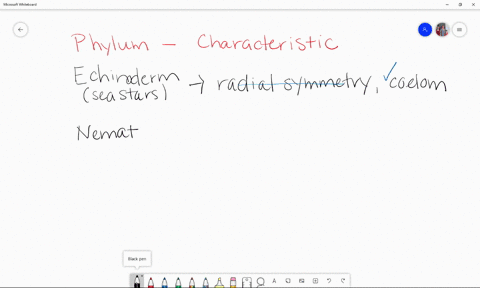 Microsoft Whiteboard
Phylum - Characteristic
Echinoderm → radial symmetry, ✓coelom
(sea stars)
Nemat
Black pen